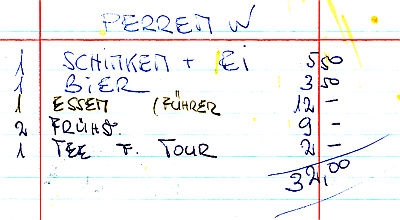 PERREN W
1 SCHINKEN + Ei 5 50
1 BiER 3 50
1 ESSEN (FÜHRER 12 -
2 FRÜHST. 9 -
1 TEE F. TOUR 2 -
32,00